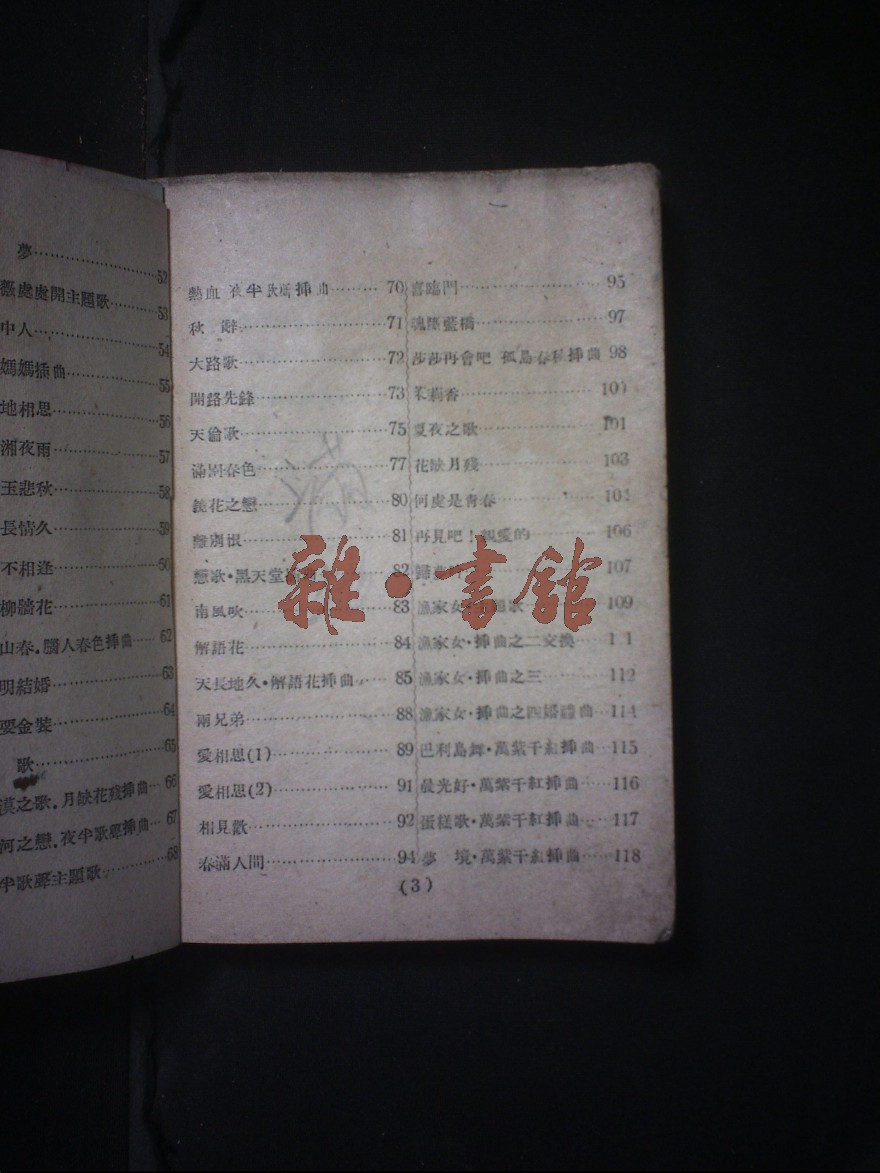 夢 52
薇處處開主題歌 53
中人 54
媽媽插曲 55
地相思 56
湘夜雨 57
玉悲秋 58
長情久 59
不相逢
柳牆花 61
山春．惱人春色插曲 62
明結婚 63
要金裝 64
歌 65
漠之歌．月缺花殘插曲 66
河之戀．夜半歌聲插曲 67
半歌聲主題歌 68
熱血 夜半歌聲插曲 70
秋 70
大路歌 72
開路先鋒 73
天倫歌 75
滿園春色 77
花之戀 80
離別恨 81
戀歌．黑天堂 82
南風吹 83
解語花 84
天長地久．解語花插曲 85
兩兄弟 88
愛相思(1) 89
愛相思(2) 91
相見歡 92
春滿人間 94
喜臨門 95
魂斷藍橋 97
莎莎再會吧 孤島春秋插曲 98
茉莉香
夏夜之歌 101
花缺月殘 103
何處是青春
再見吧！親愛的 106
歸 107
漁家女．題歌 109
漁家女．插曲之二交換
漁家女．插曲之三 112
漁家女．插曲之四婚禮曲 114
巴利島舞．萬紫千紅插曲 115
晨光好．萬紫千紅插曲 116
蛋糕歌．萬紫千紅插曲 117
夢 境．萬紫千紅插曲 118
(3)
雜·書館